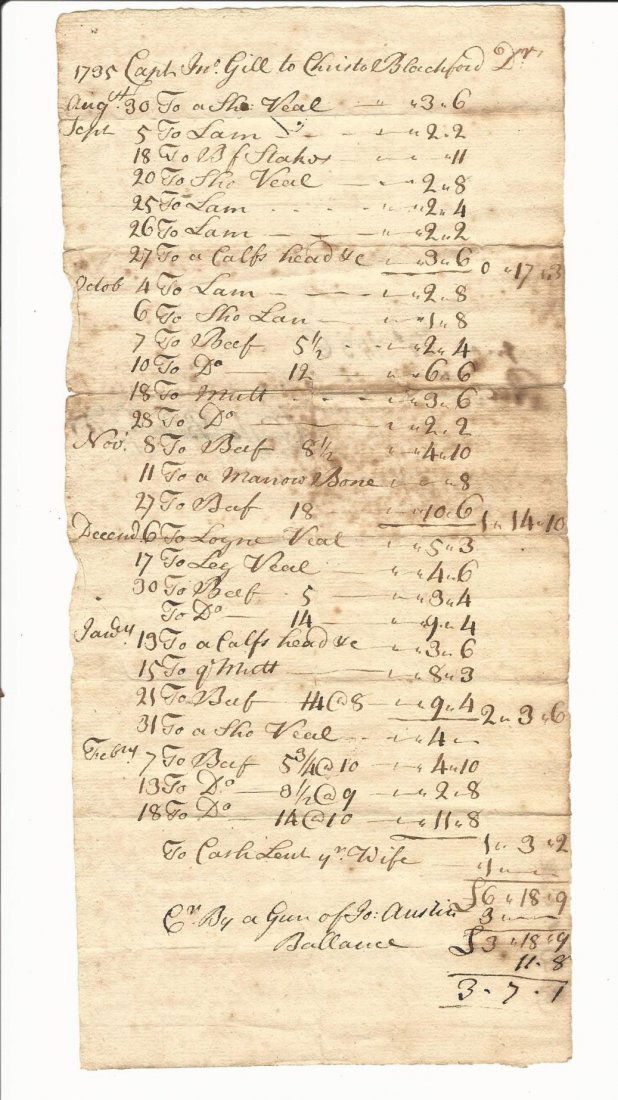 1735 Capt Jno Gill to Christo Blachford Dr
Augst 30 To a Sho: Veal — " 3 " 6
Sept 5 To Lam - - - - " 2 " 2
18 To Bf Stakes — — " 11
20 To Sho Veal — " 2 " 8
25 To Lam - - - - " 2 " 4
26 To Lam — — " 2 " 2
27 To a Calfs head &c — " 3 " 6 0 " 17 " 3
Octob 4 To Lam — — " 2 " 8
6 To Sho Lam — " 1 " 8
7 To Beef 5 1/2 - - " 2 " 4
10 To Do — 12 — " 6 " 6
18 To Mutt - - - - " 3 " 6
28 To Do — — " 2 " 2
Novr 8 To Beef 8 1/2 — " 4 " 10
11 To a Marrow Bone — " 8
27 To Beef 18 — " 10 " 6 1 " 14 " 10
Decemb 6 To Loyne Veal — " 5 " 3
17 To Leg Veal — " 4 " 6
30 To Beef — 5 — " 3 " 4
To Do — 14 — " 9 " 4
Janry 13 To a Calfs head &c — " 3 " 6
15 To qr Mutt — " 8 " 3
21 To Beef — 14 @ 8 — " 9 " 4 2 " 3 " 6
31 To a Sho Veal — " 4 " —
Febry 7 To Beef 5 3/4 @ 10 — " 4 " 10
13 To Do — 3 1/2 @ 9 — " 2 " 8
18 To Do — 14 @ 10 — " 11 " 8
1 " 3 " 2
To Cash Lent yr Wife 1 " — " —
£6 " 18 " 9
Cr By a Gun of Jo: Austin 3 " — " —
Ballance £3 " 18 " 9
11 - 8
3 - 7 - 1